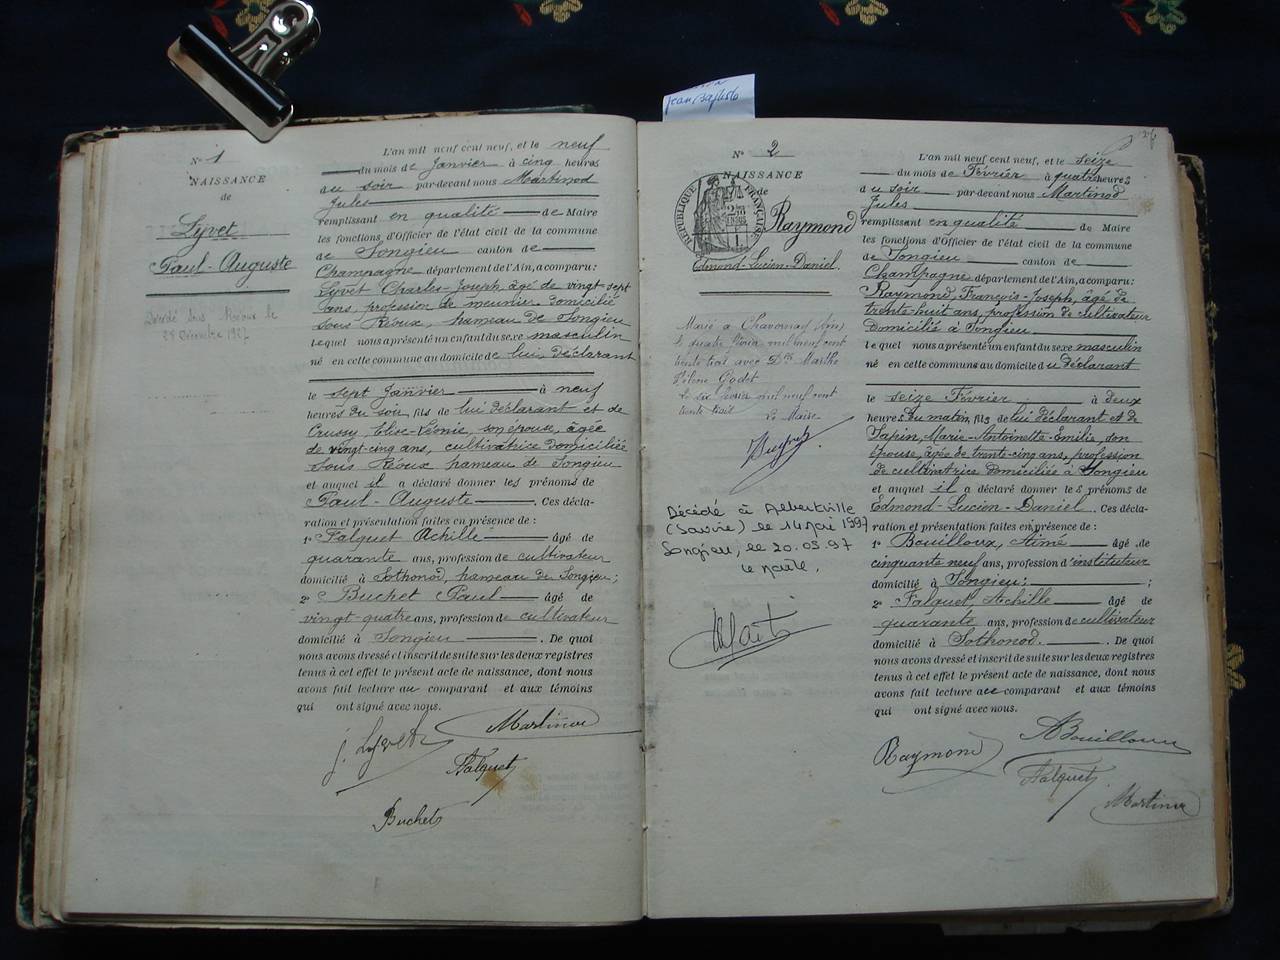 Jean Baptiste
N° 1
NAISSANCE
de
Lyvet
Paul-Auguste
28 Décembre
L'an mil neuf cent neuf, et le neuf
du mois de Janvier à cinq heures
du soir par-devant nous Martinod
Jules
remplissant en qualité de Maire
les fonctions d'Officier de l'état civil de la commune
de Songieu canton de
Champagne département de l'Ain, a comparu:
Lyvet Charles-Joseph, âgé de vingt-sept
ans, profession de meunier domicilié
sous Réoux, hameau de Songieu
lequel nous a présenté un enfant du sexe masculin
né en cette commune au domicile de lui déclarant
le sept Janvier à neuf
heures du soir, fils de lui déclarant et de
Crussy Elise-Léonie, son épouse, âgée
de vingt-cinq ans, cultivatrice domiciliée
sous Réoux hameau de Songieu
et auquel il a déclaré donner les prénoms de
Paul-Auguste. Ces décla-
ration et présentation faites en présence de :
1° Falquet Achille âgé de
quarante ans, profession de cultivateur
domicilié à Sothonod, hameau de Songieu ;
2° Buchet Paul âgé de
vingt-quatre ans, profession de cultivateur
domicilié à Songieu. De quoi
nous avons dressé et inscrit de suite sur les deux registres
tenus à cet effet le présent acte de naissance, dont nous
avons fait lecture au comparant et aux témoins
qui ont signé avec nous.
J. Lyvet
Martinod
A Falquet
Buchet
N° 2
NAISSANCE
de
RÉPUBLIQUE FRANÇAISE
Raymond
Edmond-Lucien-Daniel.
Marié à Chavornay (Ain)
le quatre Juin mil neuf cent
trente trois avec Dlle Marthe
Hélène Godet
Le six Juin mil neuf cent
trente trois
Le Maire
Décédé à Albertville
(Savoie) le 14 mai 1997
Songieu, le 20.05.97
Le Maire,
L'an mil neuf cent neuf, et le seize
du mois de Février à quatre heures
du soir par-devant nous Martinod
Jules
remplissant en qualité de Maire
les fonctions d'Officier de l'état civil de la commune
de Songieu canton de
Champagne département de l'Ain, a comparu :
Raymond, François-Joseph, âgé de
trente-huit ans, profession de cultivateur
domicilié à Songieu
lequel nous a présenté un enfant du sexe masculin
né en cette commune au domicile du déclarant
le seize Février à deux
heures du matin, fils de lui déclarant et de
Sapin, Marie-Antoinette-Emilie, son
épouse, âgée de trente-cinq ans, profession
de cultivatrice domiciliée à Songieu
et auquel il a déclaré donner les prénoms de
Edmond-Lucien-Daniel. Ces décla-
ration et présentation faites en présence de :
1° Bouilloux, Aimé âgé de
cinquante neuf ans, profession d'instituteur
domicilié à Songieu ;
2° Falquet, Achille âgé de
quarante ans, profession de cultivateur
domicilié à Sothonod. De quoi
nous avons dressé et inscrit de suite sur les deux registres
tenus à cet effet le présent acte de naissance, dont nous
avons fait lecture au comparant et aux témoins
qui ont signé avec nous.
A Bouilloux
Raymond
A Falquet
Martinod